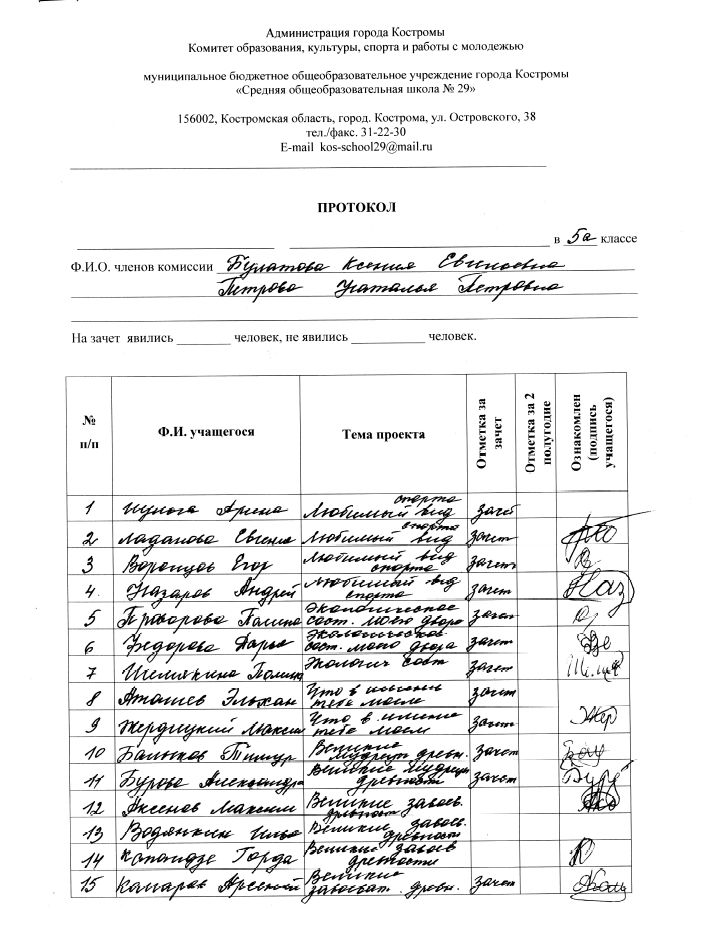 Администрация города Костромы
Комитет образования, культуры, спорта и работы с молодежью
муниципальное бюджетное общеобразовательное учреждение города Костромы
«Средняя общеобразовательная школа № 29»
156002, Костромская область, город. Кострома, ул. Островского, 38
тел./факс. 31-22-30
E-mail kos-school29@mail.ru
ПРОТОКОЛ
в 5а классе
Ф.И.О. членов комиссии Булатова Ксения Евгеньевна
Петрова Наталья Петровна
На зачет явились ________ человек, не явились ___________ человек.
№ п/п Ф.И. учащегося Тема проекта Отметка за зачет Отметка за 2 полугодие Ознакомлен (подпись учащегося)
1 Арина Любимый вид спорта зачет
2 Евгения Любимый вид спорта зачет
3 Воронцов Егор Любимый вид спорта зачет
4. Назаров Андрей Любимый вид спорта зачет Наз
5 Прохорова Полина Экологическое сост. моего двора зачет
6 Федорова Дарья Экологическое сост. моего двора зачет
7 Шемякина Полина Экологич сост зачет
8 Аташев Эльхан Что в имени тебе моем зачет
9 Жердицкий Максим Что в имени тебе моем зачет Жер
10 Тимур Великие мудрецы древн. зачет
11 Бурова Александра Великие мудрецы древности зачет Бур
12 Аксенов Максим Великие завоев. древности
13 Водянкин Илья Великие завоев. древности
14 Великие завоев древности
15 Комаров Арсений Великие завоеват. древн. зачет